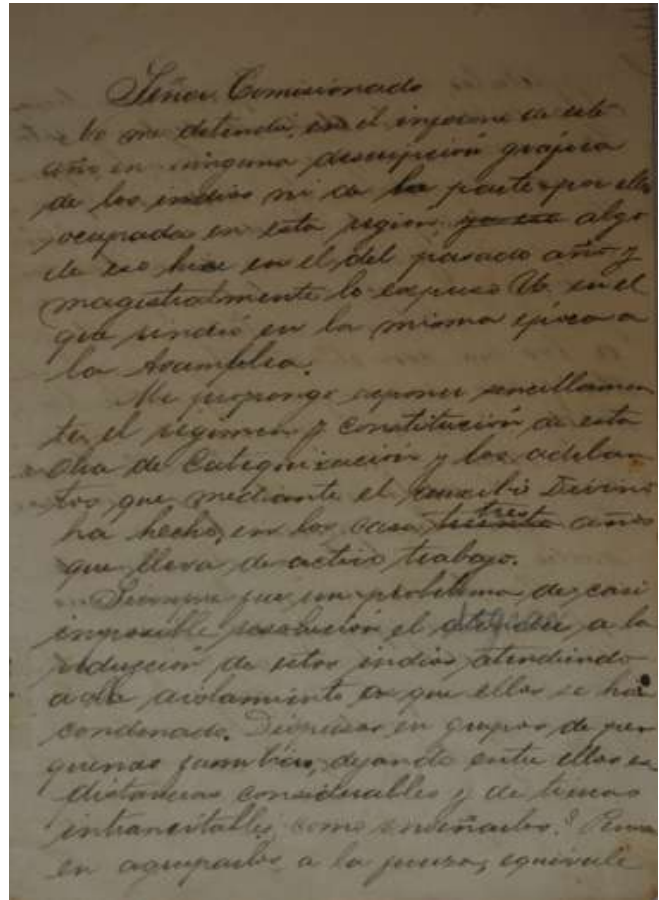 Señor Comisionado
No me detendré, en el informe de este
año en ninguna descripción gráfica
de los indios ni de la parte por ellos
ocupada en esta region, algo
de eso hice en el del pasado año y
magistralmente lo expuso Ud. en el
que rindió en la misma época a
la Asamblea.
Me propongo exponer sencillamen
te, el regimen y constitución de esta
obra de Catequización y los adelan
tos, que mediante el auxilio Divino
ha hecho, en los casi tres años
que lleva de activo trabajo.
Siempre fue un problema de casi
imposible resolución el a la
reducción de estos indios, atendiendo
al aislamiento a que ellos se han
condenado. Dispersos en grupos de pe
queñas familias, dejando entre ellas
distancias considerables y de tierras
intransitables, como enseñarlos? Pensar
en agruparlos a la fuerza, equivale